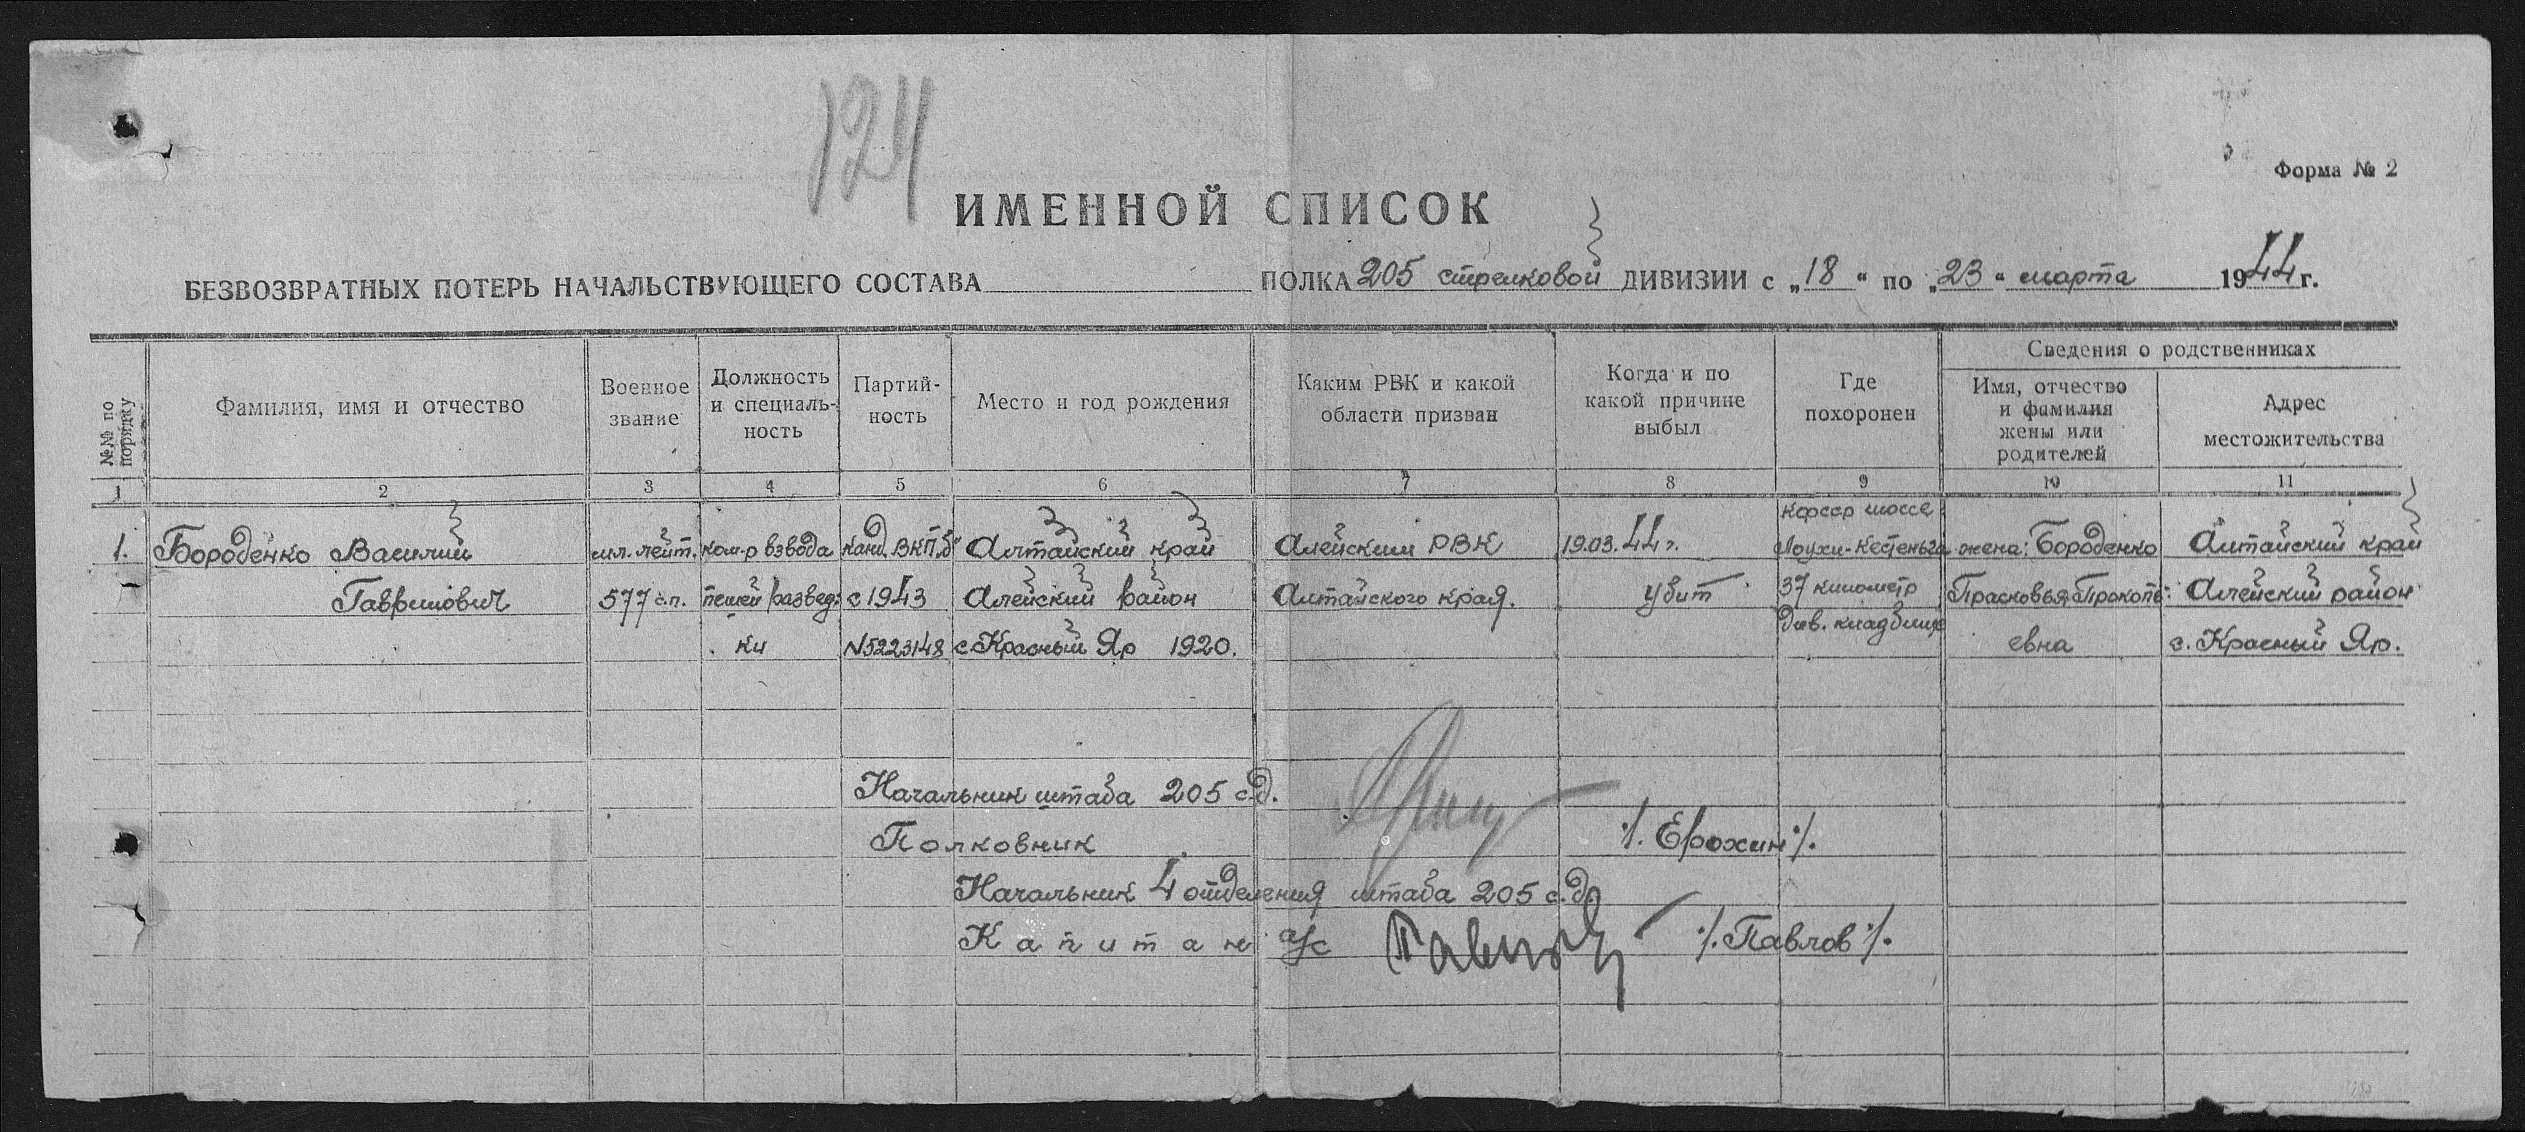 124
Форма № 2
ИМЕННОЙ СПИСОК
БЕЗВОЗВРАТНЫХ ПОТЕРЬ НАЧАЛЬСТВУЮЩЕГО СОСТАВА ПОЛКА 205 стрелковой ДИВИЗИИ с „18“ по „23“ марта 1944 г.
№№ по порядку
Фамилия, имя и отчество
Военное звание
Должность и специаль-ность
Партий-ность
Место и год рождения
Каким РВК и какой области призван
Когда и по какой причине выбыл
Где похоронен
Сведения о родственниках
Имя, отчество и фамилия жены или родителей
Адрес местожительства
1 2 3 4 5 6 7 8 9 10 11
1. Бороденко Василий
Гаврилович
мл. лейт.
577 с.п.
ком-р взвода
пешей развед.
ки
канд. ВКП„б“
с 1943
№5223148
Алтайский край
Алейский район
с. Красный Яр 1920.
Алейским РВК
Алтайского края.
19.03.44г.
убит
Кфсср шоссе
Лоухи-Кестеньга
37 километр
див. кладбище
жена: Бороденко
Прасковья Прокопь-
евна
Алтайский край
Алейский район
с. Красный Яр.
Начальник штаба 205 с.д.
Полковник /. Ерохин /.
Начальник 4 отделения штаба 205 с.д.
Капитан а/с Павлов /. Павлов /.